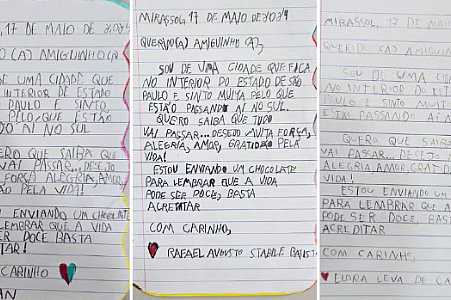 ,17 DE MAIO DE 2024
O(A) AMIGUINHO(A
DE UMA CIDADE QUE
INTERIOR DE ESTADO
PAULO E SINTO
PELO QUE ESTÃO
DO AÍ NO SUL
ERO SAIBA QUE
VAI PASSAR...DESEJO
FORÇA ALEGRIA, AMOR,
ÃO PELA VIDA!
ENVIANDO UM CHOCOLATE
LEMBRAR QUE A VIDA
SER DOCE BASTA
DITAR!
CARINHO
AN
MIRASSOL, 17 DE MAIO DE 2024
QUERIDO(A) AMIGUINHO(A),
SOU DE UMA CIDADE QUE FICA
NO INTERIOR DO ESTADO DE SÃO
PAULO E SINTO MUITO PELO QUE
ESTÃO PASSANDO AÍ NO SUL.
QUERO SAIBA QUE TUDO
VAI PASSAR... DESEJO MUITA FORÇA,
ALEGRIA, AMOR, GRATIDÃO PELA
VIDA!
ESTOU ENVIANDO UM CHOCOLATE
PARA LEMBRAR QUE A VIDA
PODE SER DOCE, BASTA
ACREDITAR
COM CARINHO,
RAFAEL AUGUSTO STABILE BATIST
MIRASSOL, 17 DE MAIO
QUERIDO (A) AMIGUIN
SOU DE UMA CID
NO INTERIOR DO EST
PAULO E SINTO MUIT
ESTÃO PASSANDO AÍ
QUERO SAIBA QUE
VAI PASSAR... DESEJO
ALEGRIA, AMOR, GRATI
VIDA!
ESTOU ENVIANDO
PARA LEMBRAR QUE A
PODE SER DOCE, BAST
ACREDITAR
COM CARINHO,
DE CA